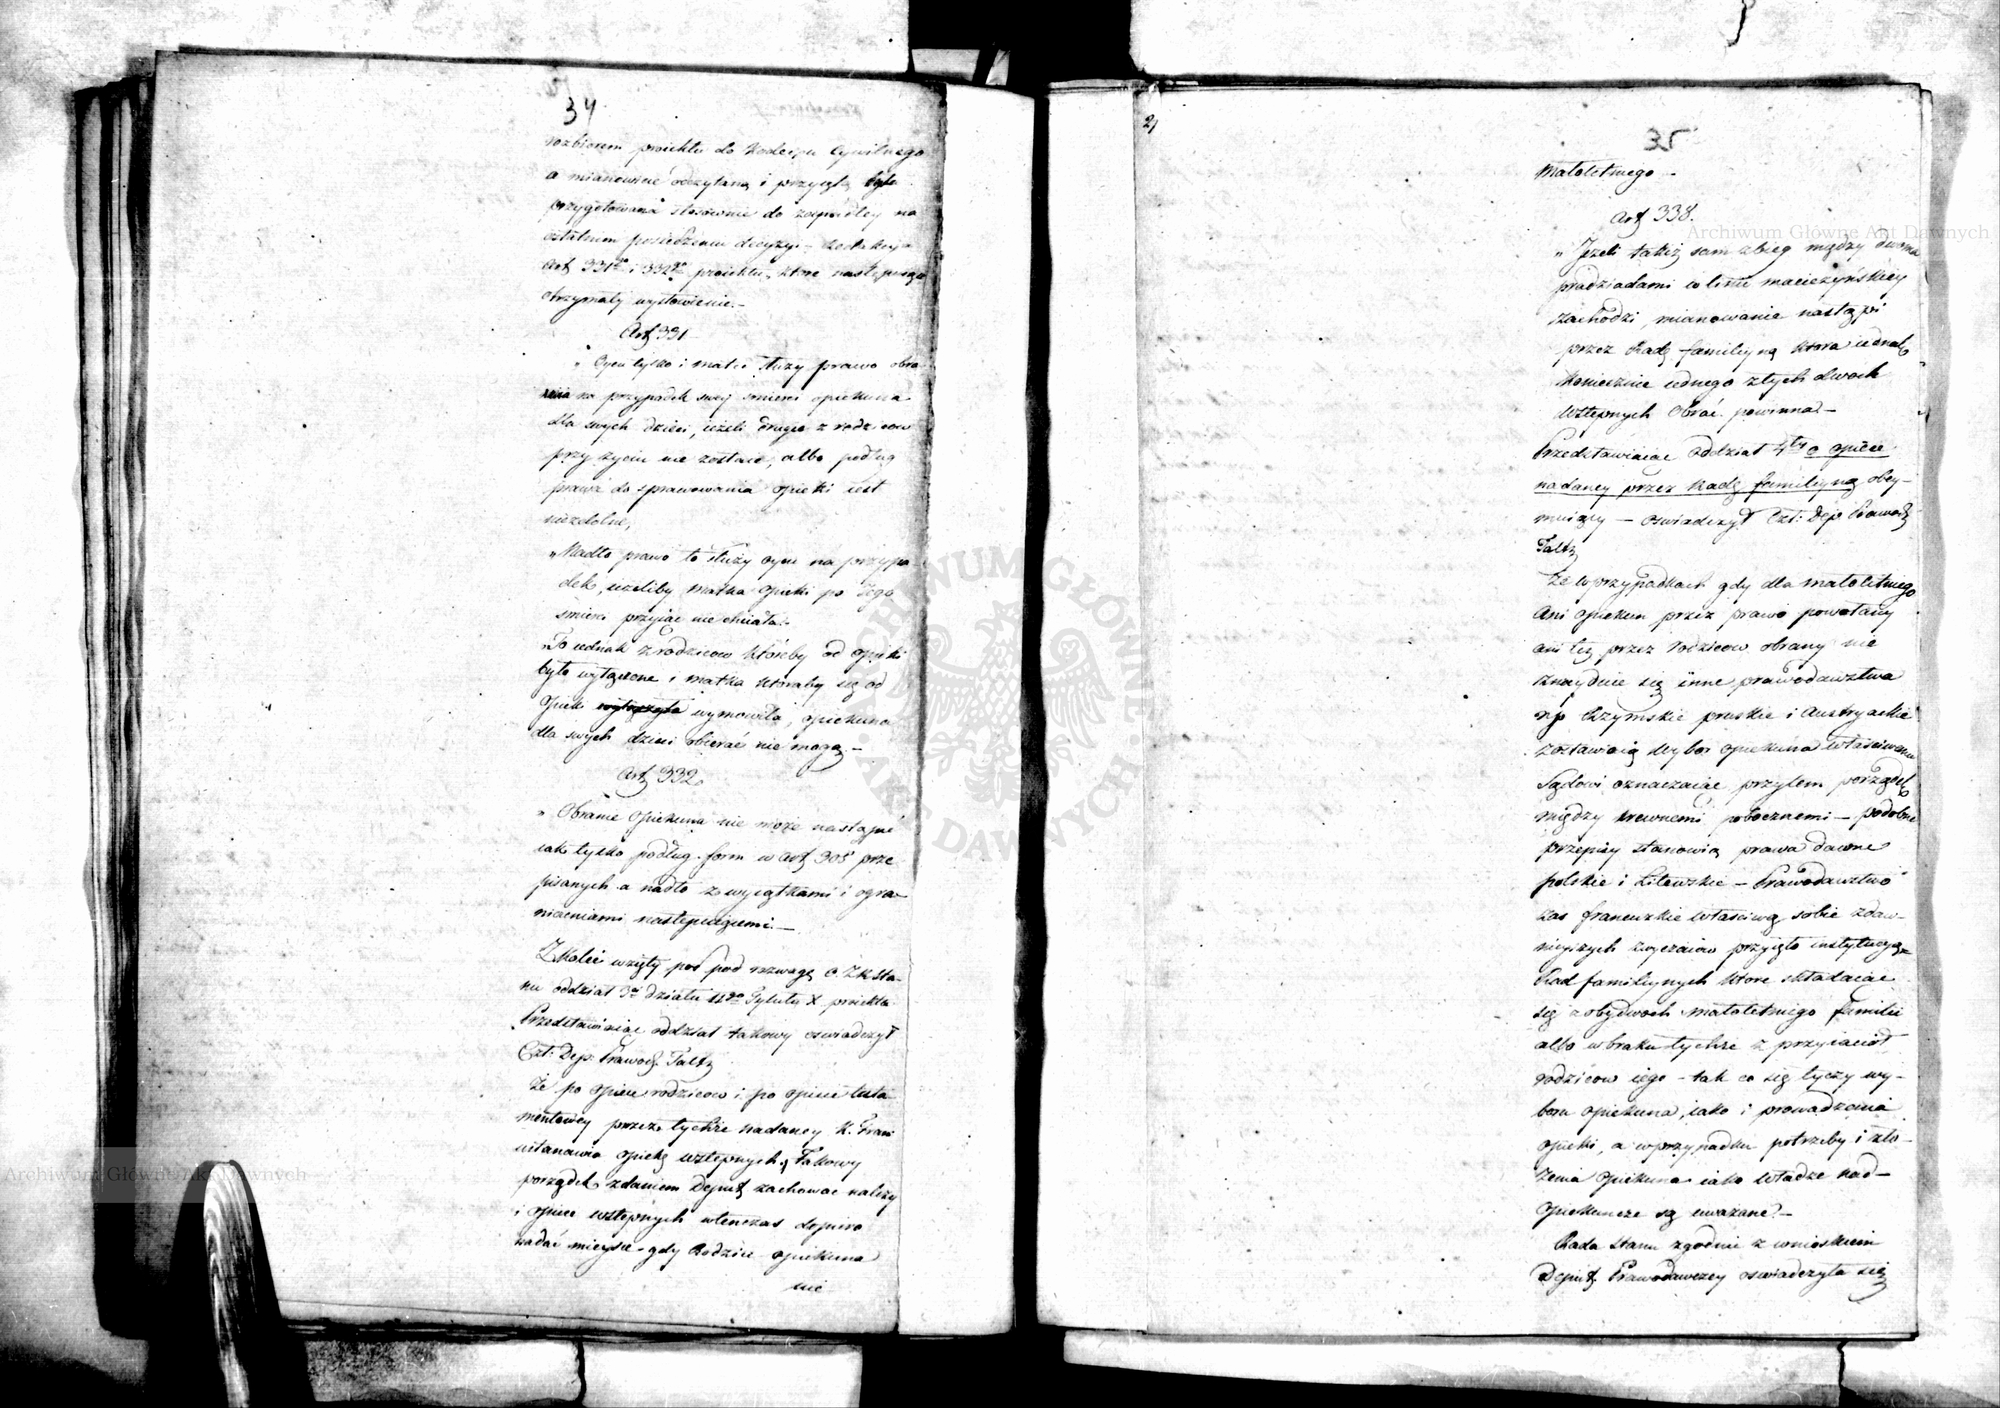 34
rozbiorem proiektu do Kodexu Cywilnego
a mianowicie odczytaną i przyiętą była
przygotowana stosownie do zapadłey na
ostatnim posiedzeniu decyzyi - Redakcya
Art 331go i 332go proiektu, które następuiące
otrzymały wysłowienie. -
Art 331
„ Oycu tylko i matce służy prawo obra-
nia na przypadek swey smierci opiekuna
dla swych dzieci, ieżeli drugie z rodziców
przy życiu nie zostaie, albo podług
prawa do sprawowania opieki iest
niezdolne,
„Nadto prawo to służy oycu na przypa-
dek, ieżeliby matka opieki po Jego
smierci przyiąć nie chciała. -
„To iednak z rodziców któreby od opieki
było wyłączone i matka któraby się od
opieki wymowiła, opiekuna
dla swych dzieci obierać nie mogą. -
Art 332.
„ Obranie opiekuna nie może nastąpić
iak tylko podług form w art 305 prze
pisanych a nadto z wyiątkami i ogra-
niczeniami następuiącemi. -
Z Kolei wzięty pod rozwagę o Z K Sta-
nu oddział 3ci działu IIgo Tytułu X proiektu
Przedstawiaiąc oddział takowy oswiadczył
Czł: Dep. Prawod. Faltz
Że po opiece rodziców i po opiece testa
mentowey przez tychże nadaney K. Fran
ustanawia opiekę wstępnych, Takowy
porządek zdaniem Deput zachować należy
i opiece wstępnych wtenczas dopiero
nadać mieysce - gdy Rodzice opiekuna
nie
2)
35
Małoletniego -
Art 338.
„ Jeżeli takiż sam zbieg między dwoma
pradziadami w linii macierzyńskiey
zachodzi, mianowanie nastąpi
przez Radę familiyną która iednak
koniecznie iednego z tych dwóch
wstępnych obrać powinna -
Przedstawiaiąc Oddział 4ty o opiece
nadaney przez Radę familiyną obey-
muiący - oswiadczył Czł: Dep Prawod
Faltz
Że w przypadkach gdy dla małoletniego
ani opiekun przez prawo powołany
ani też przez rodziców obrany nie
znayduie się inne prawodawstwa
np Rzymskie pruskie i Austryackie
zostawiaią wybor opiekuna właściwemu
Sądowi oznaczaiąc przytem porządek
między krewnemi pobocznemi - podobne
przepisy stanowią prawa dawne
polskie i Litewskie - Prawodawstwo
zas francuzkie właściwą sobie z daw-
nieyszych zwyczaiów przyięło instytucyą
Rad familiynych które składaiąc
się z obydwoch małoletniego familii
albo w braku tychże z przyiaciół
rodziców iego - tak co się tyczy wy-
boru opiekuna, iako i prowadzenia
opieki, a w przypadku potrzeby i zło-
żenia opiekuna iako władze nad-
opiekuncze są uważane. -
Rada Stanu zgodnie z wnioskiem
Deput Prawodawczey oswiadczyła się
Archiwum Główne Akt Dawnych
Archiwum Główne Akt Dawnych
ARCHIWUM GŁÓWNE AKT DAWNYCH